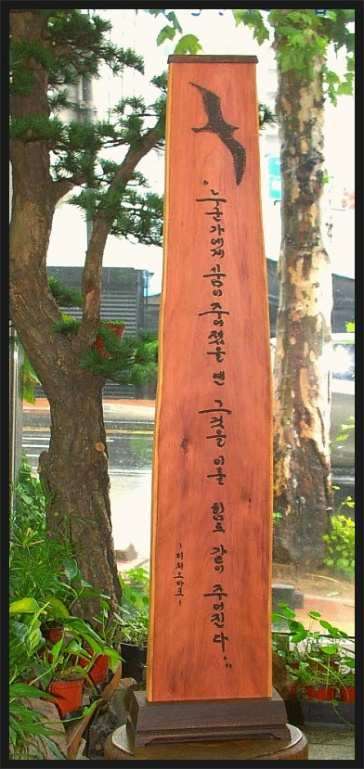 "누군가에게 꿈이 주어졌을 땐 그것을 이룰 힘도 같이 주어진다."
-리처드 바크-